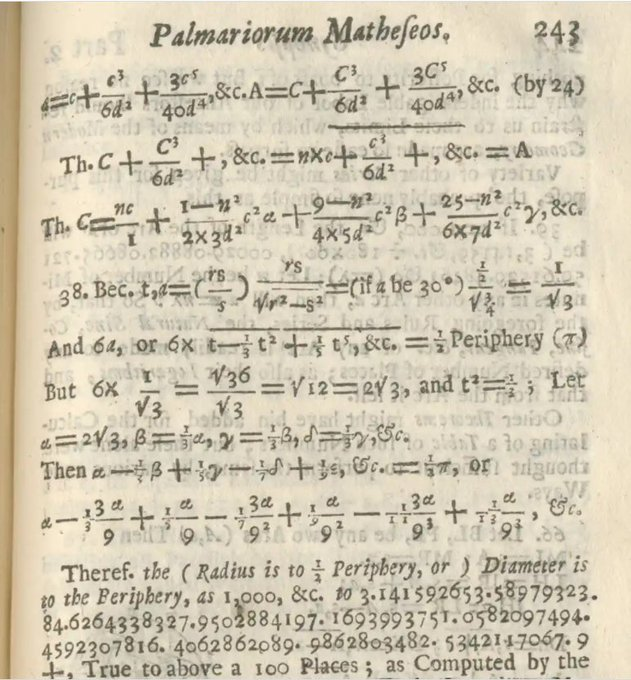 Palmariorum Matheſeos. 243
a=c+c³/6d²+3c⁵/40d⁴,&c.A=C+C³/6d²+3C⁵/40d⁴,&c. (by 24)
Th. C+C³/6d²+,&c.=n×c+c³/6d²+,&c.=A
Th. C=nc/1+1−n²/2×3d²c²α+9−n²/4×5d²c²β+25−n²/6×7d²c²γ,&c.
38. Bec. t,a=(rs/s) rs/√r²−s²=(if a be 30°) ½/√¾=1/√3
And 6a, or 6× t−⅓t²+⅕t⁵, &c.=½Periphery (π)
But 6×1/√3=√36/√3=√12=2√3, and t²=⅓; Let
α=2√3, β=⅓α, γ=⅓β, δ=⅓γ,&c.
Then α−⅓β+⅕γ−⅐δ+⅑ε, &c.=½π, or
α−⅓3α/9+⅕α/9−⅐3α/9²+⅑α/9²−1/11 3α/9³+1/13 α/9³, &c.
Theref. the (Radius is to ½ Periphery, or) Diameter is
to the Periphery, as 1,000, &c. to 3.141592653.58979323.
84.6264338327.9502884197.1693993751.0582097494.
4592307816.4062862089.9862803482.5342117067.9
+, True to above a 100 Places; as Computed by the